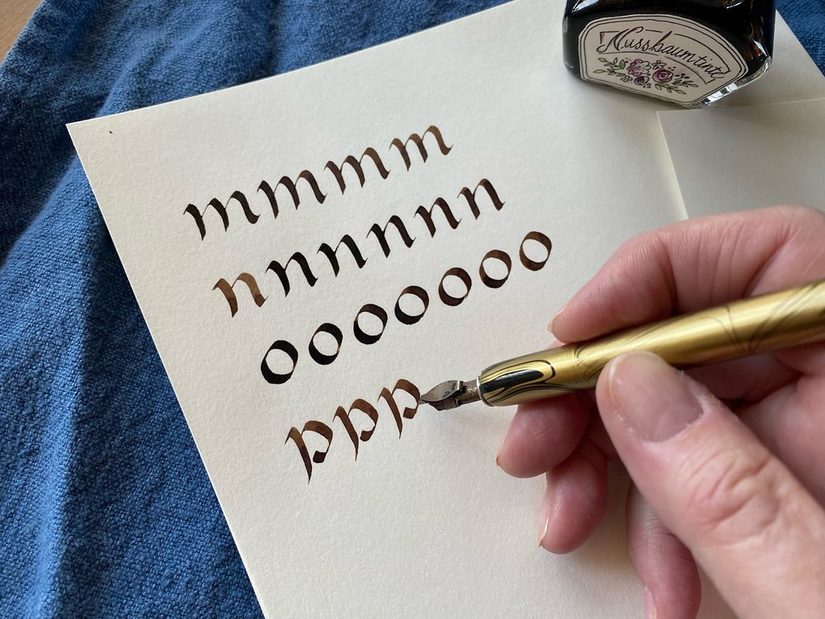 Nussbaumtinte
mmmm
nnnnnn
ooooooo
ppp